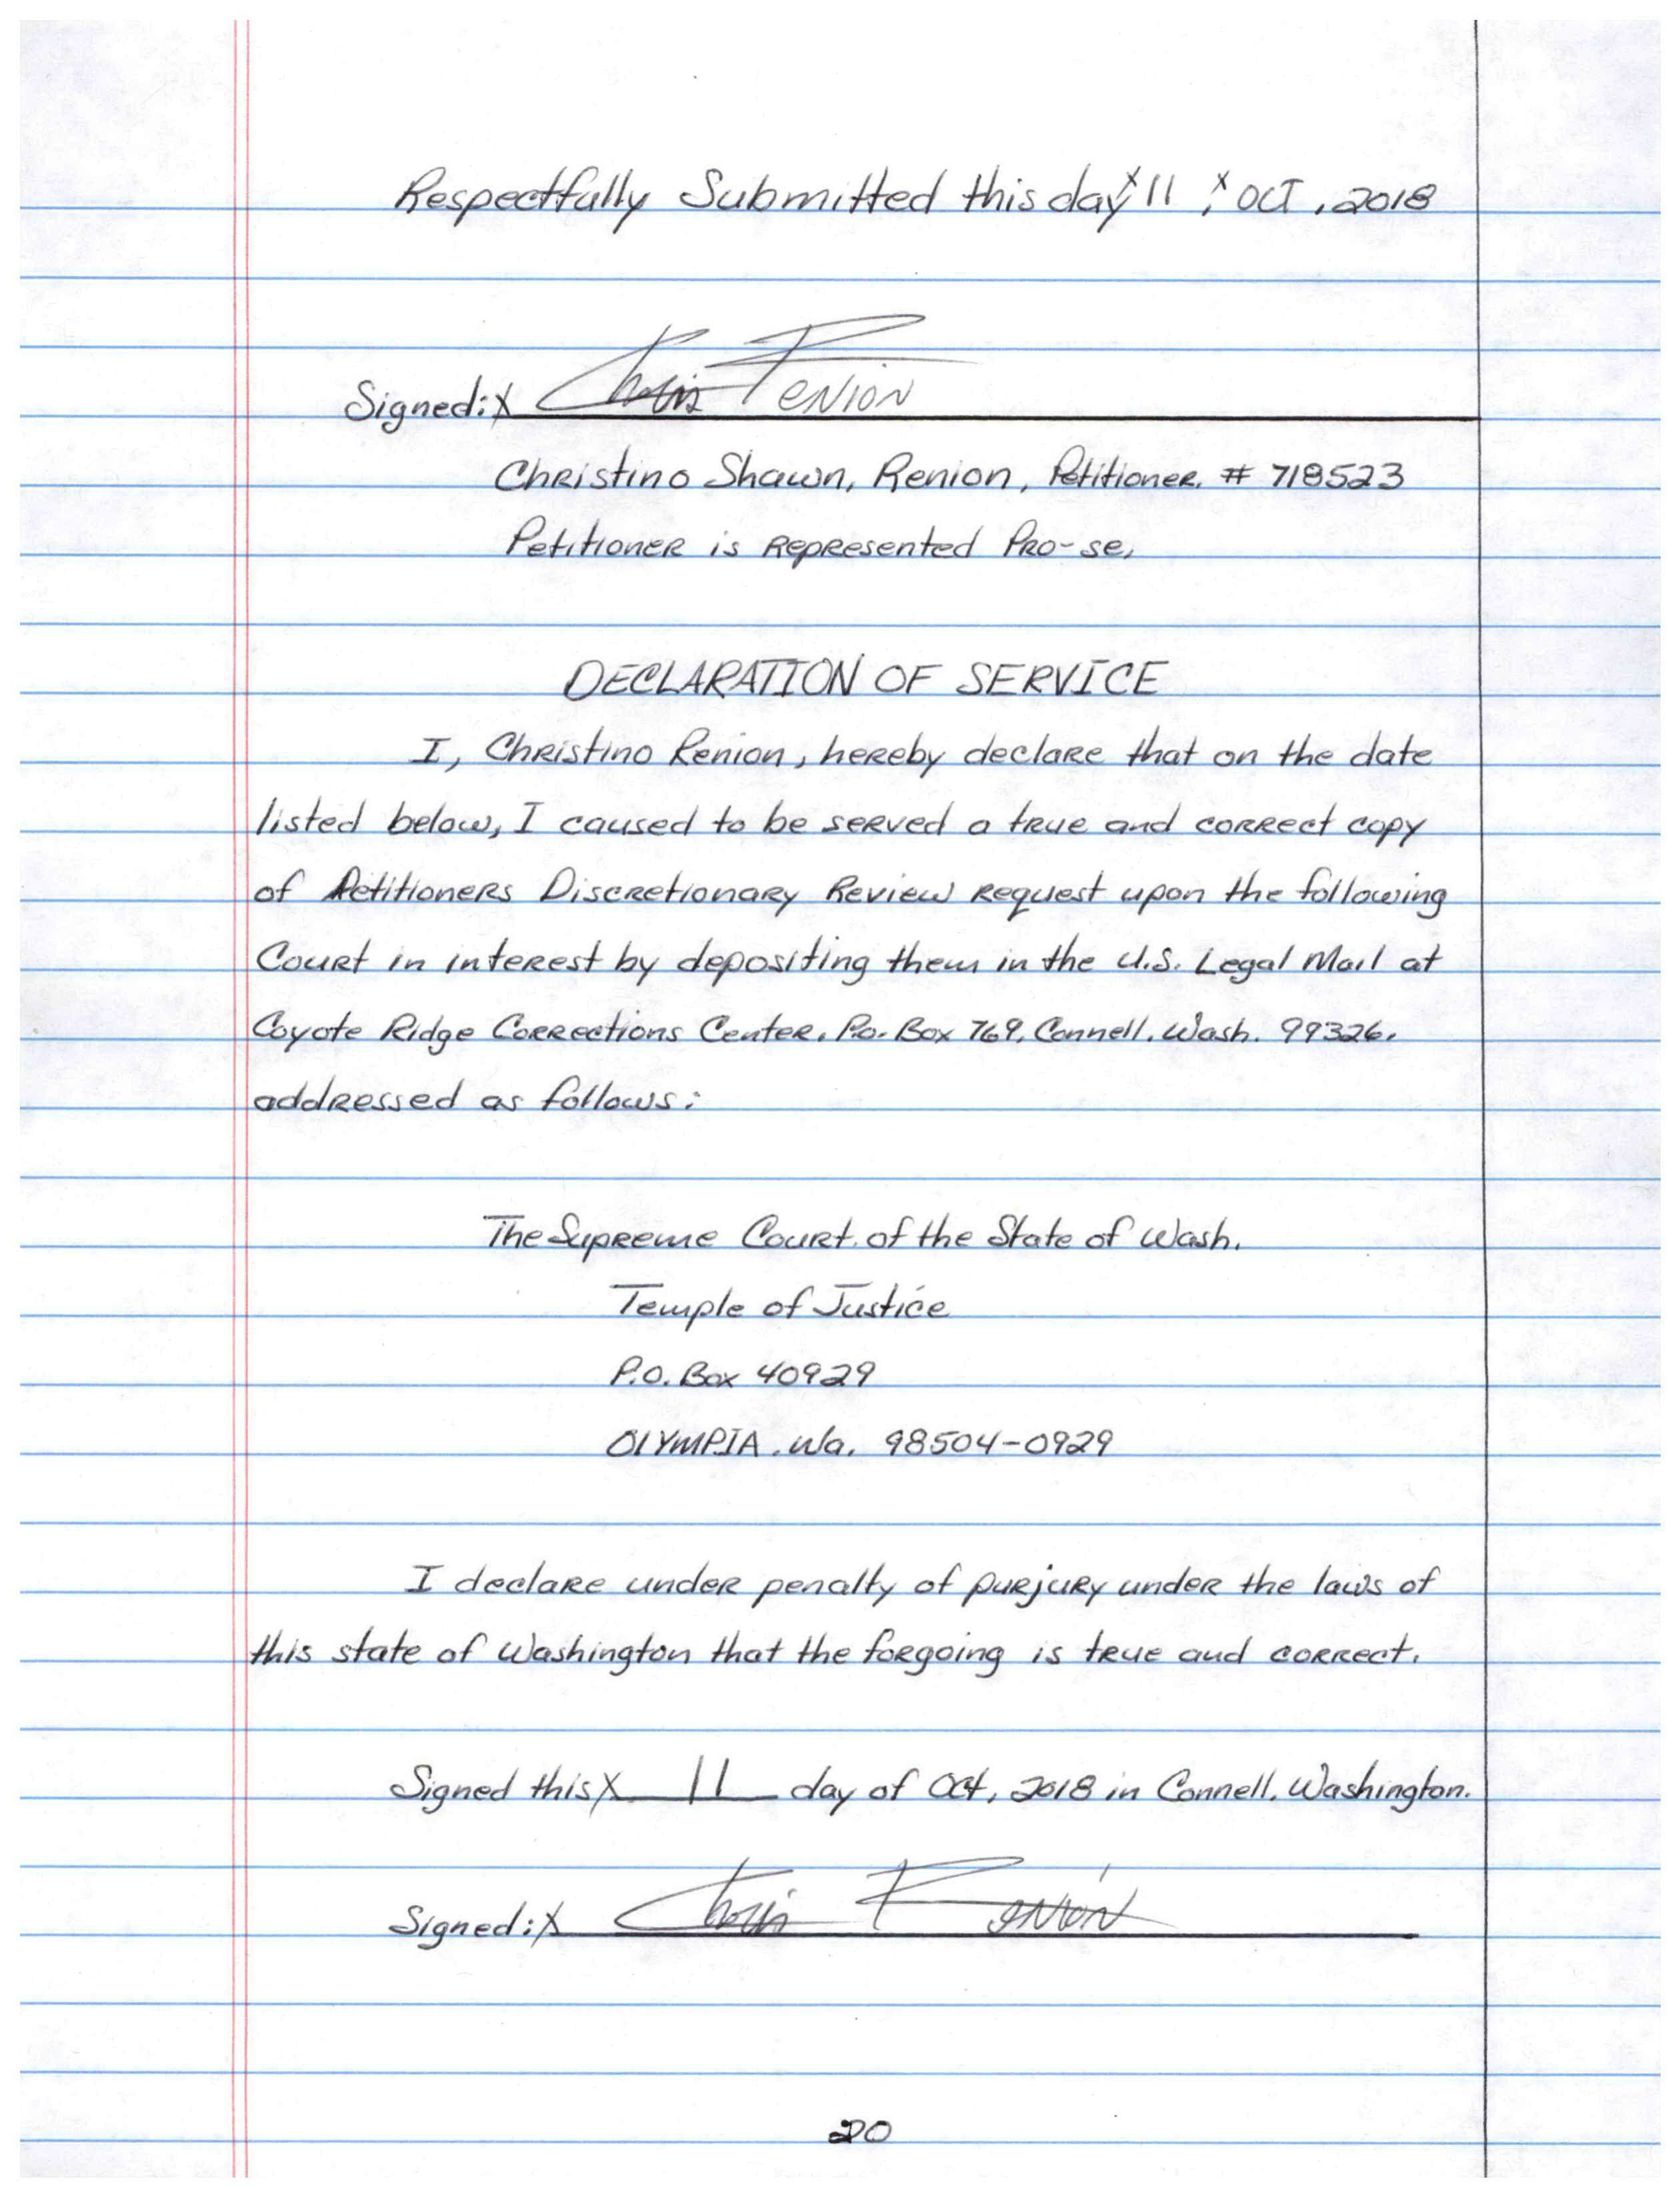 Respectfully Submitted this day x 11 ; x OCT, 2018
Signed: X Chris Renion
Christino Shawn, Renion, Petitioner. # 718523
Petitioner is Represented Pro-se.
DECLARATION OF SERVICE
I, Christino Renion, hereby declare that on the date
listed below, I caused to be served a true and correct copy
of Petitioners Discretionary Review Request upon the following
Court in interest by depositing them in the U.S. Legal Mail at
Coyote Ridge Corrections Center. P.o. Box 769, Connell. Wash. 99326.
addressed as follows:
The Supreme Court of the State of Wash.
Temple of Justice
P.O. Box 40929
OlYMPIA. Wa. 98504-0929
I declare under penalty of purjury under the laws of
this state of Washington that the forgoing is true and correct.
Signed this X 11 day of Oct, 2018 in Connell, Washington.
Signed: X Chris Renion
20